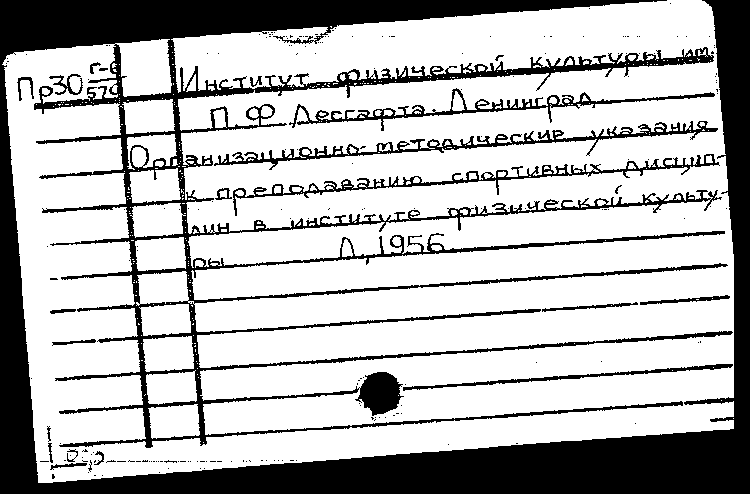 Пр30 г-6/579 Институт физической культуры им.
П.Ф. Лесгафта. Ленинград
Организационно-методические указания
к преподаванию спортивных дисцип-
лин в институте физической культу-
ры Л., 1956